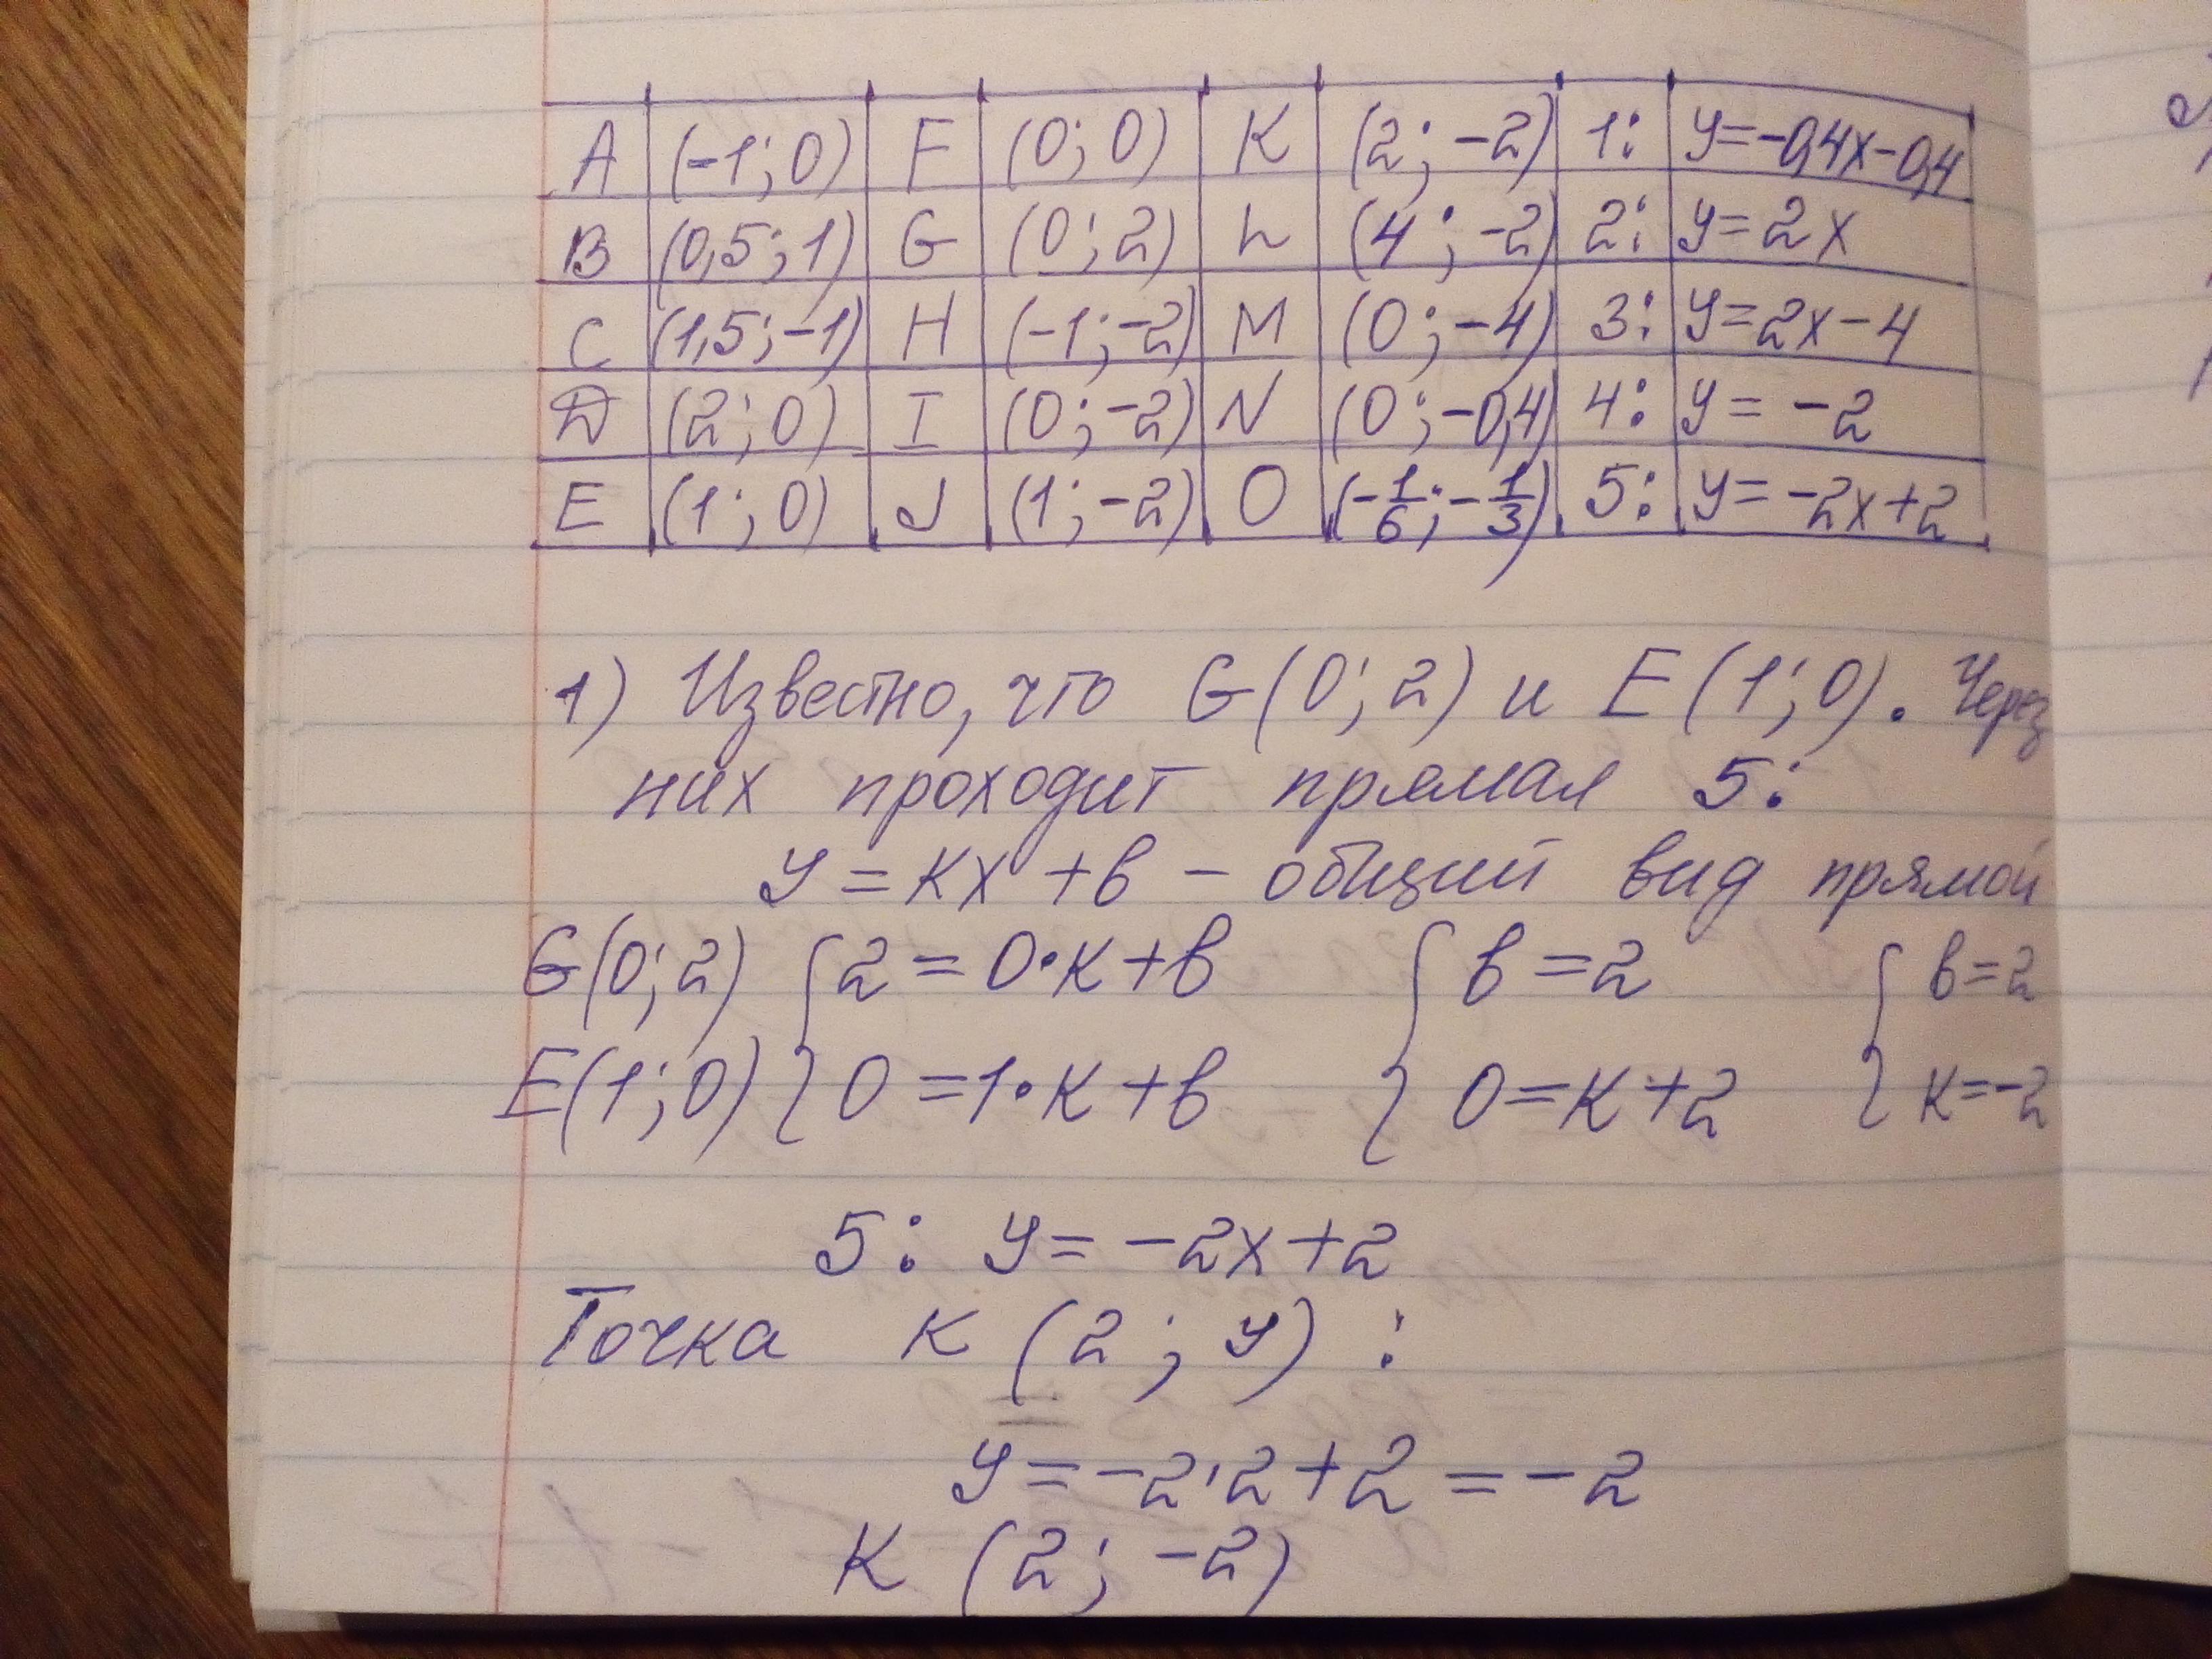 A (-1; 0) F (0; 0) K (2; -2) 1: y=-0,4x-0,4
B (0,5; 1) G (0; 2) L (4; -2) 2: y=2x
C (1,5; -1) H (-1; -2) M (0; -4) 3: y=2x-4
D (2; 0) I (0; -2) N (0; -0,4) 4: y= -2
E (1; 0) J (1; -2) O (-1/6; -1/3) 5: y= -2x+2
1) Известно, что G(0; 2) и E(1; 0). Через
них проходит прямая 5:
y=kx+b - общий вид прямой
G(0; 2) { 2=0·k+b { b=2 { b=2
E(1; 0) { 0=1·k+b { 0=k+2 { k=-2
5: y= -2x+2
Точка K (2; y):
y=-2·2+2=-2
K (2; -2)